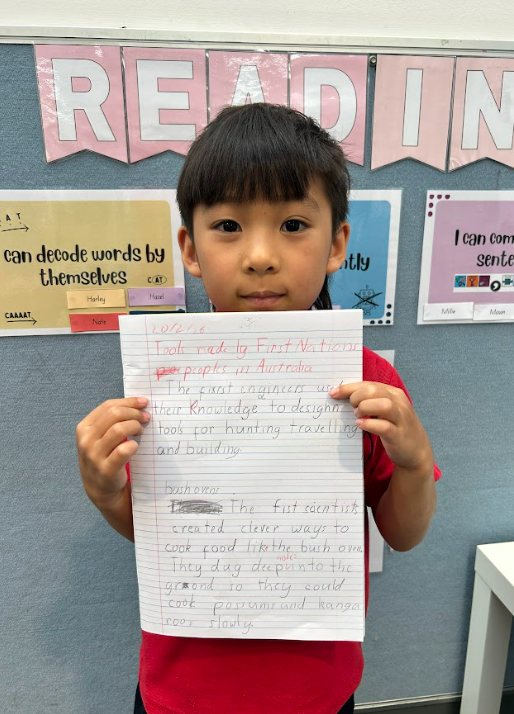 READIN
CAT
can decode words by
themselves
CAT
Harley
Hazel
Nate
CAAAAT
ntly
I can com
sente
Millie
20/2/26
Tools made by First Nations
peoples in Australia
The first engineers used
their Knowledge to designn
tools for hunting travelling
and building.
bush ovens
The fist scientists
created clever ways to
cook food like the bush oven
They dug deep holes into the
grond so they could
cook possums and kanga
roos slowly.